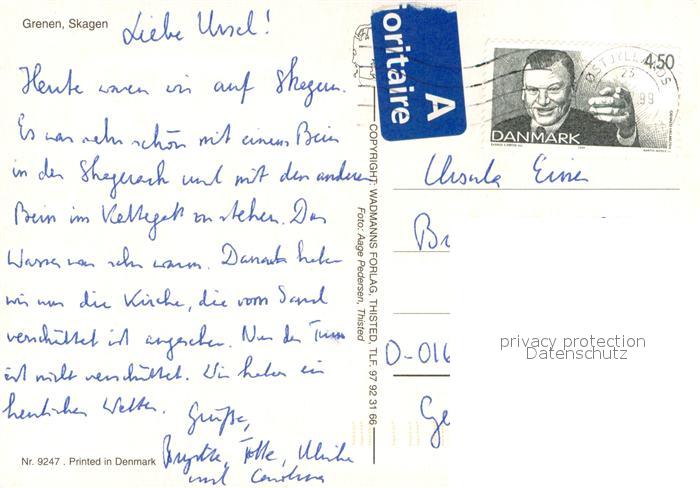 Grenen, Skagen
Liebe Ursel!
Heute waren wir auf Skagen.
Es war sehr schön mit einem Bein
in der Skagerack und mit dem anderen
Bein im Kattegatt zu stehen. Das
Wasser war sehr warm. Danach haben
wir uns die Kirche, die vom Sand
verschüttet ist angesehen. Nur der Turm
ist nicht verschüttet. Wir haben ein
herrliches Wetter.
Grüße,
Ulrike
und Carolina
Nr. 9247 . Printed in Denmark
COPYRIGHT: WADMANNS FORLAG, THISTED, TLF. 97 92 31 66
Foto: Aage Pedersen, Thisted
oritaire
A
4.50
DANMARK
ØSTJYLLANDS
23
99
Ursula
Br
D-016
Ge
privacy protection
Datenschutz